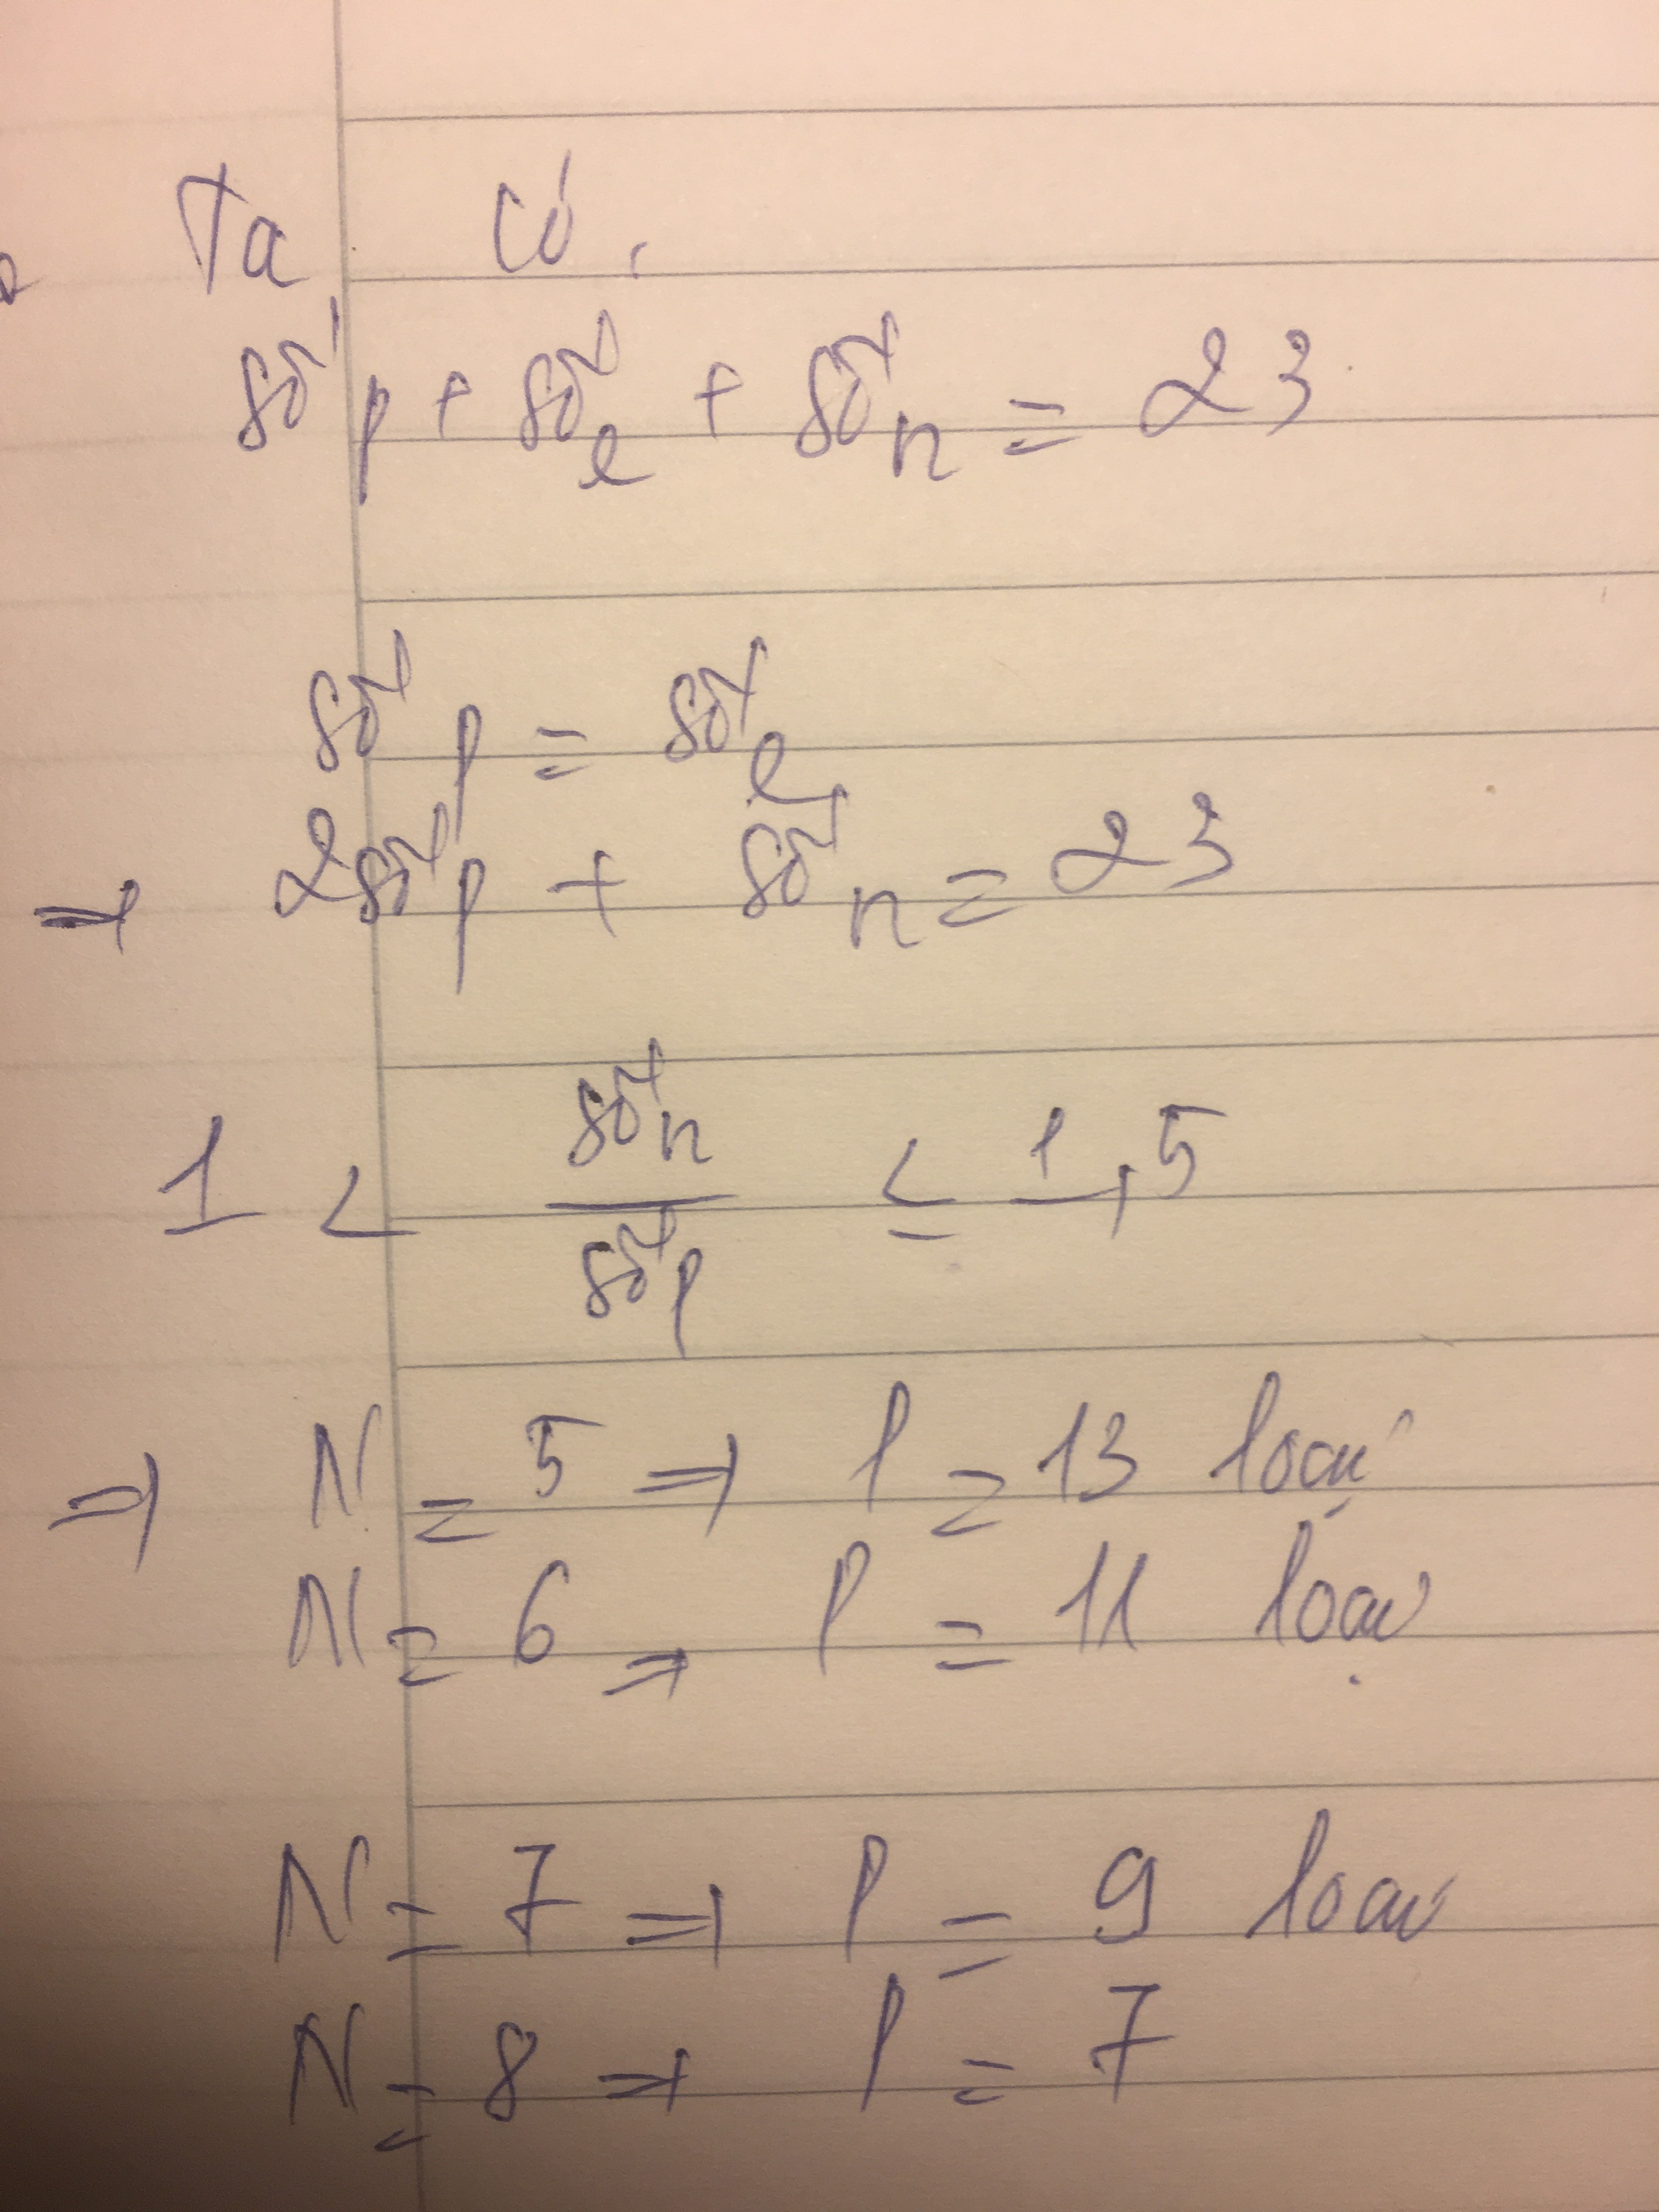 Ta có,
số p + số e + số n = 23
số p = số e
⇒ 2số p + số n = 23
1 < số n / số p ≤ 1,5
⇒ N = 5 ⇒ P = 13 loại
N = 6 ⇒ P = 11 loại
N = 7 ⇒ P = 9 loại
N = 8 ⇒ P = 7